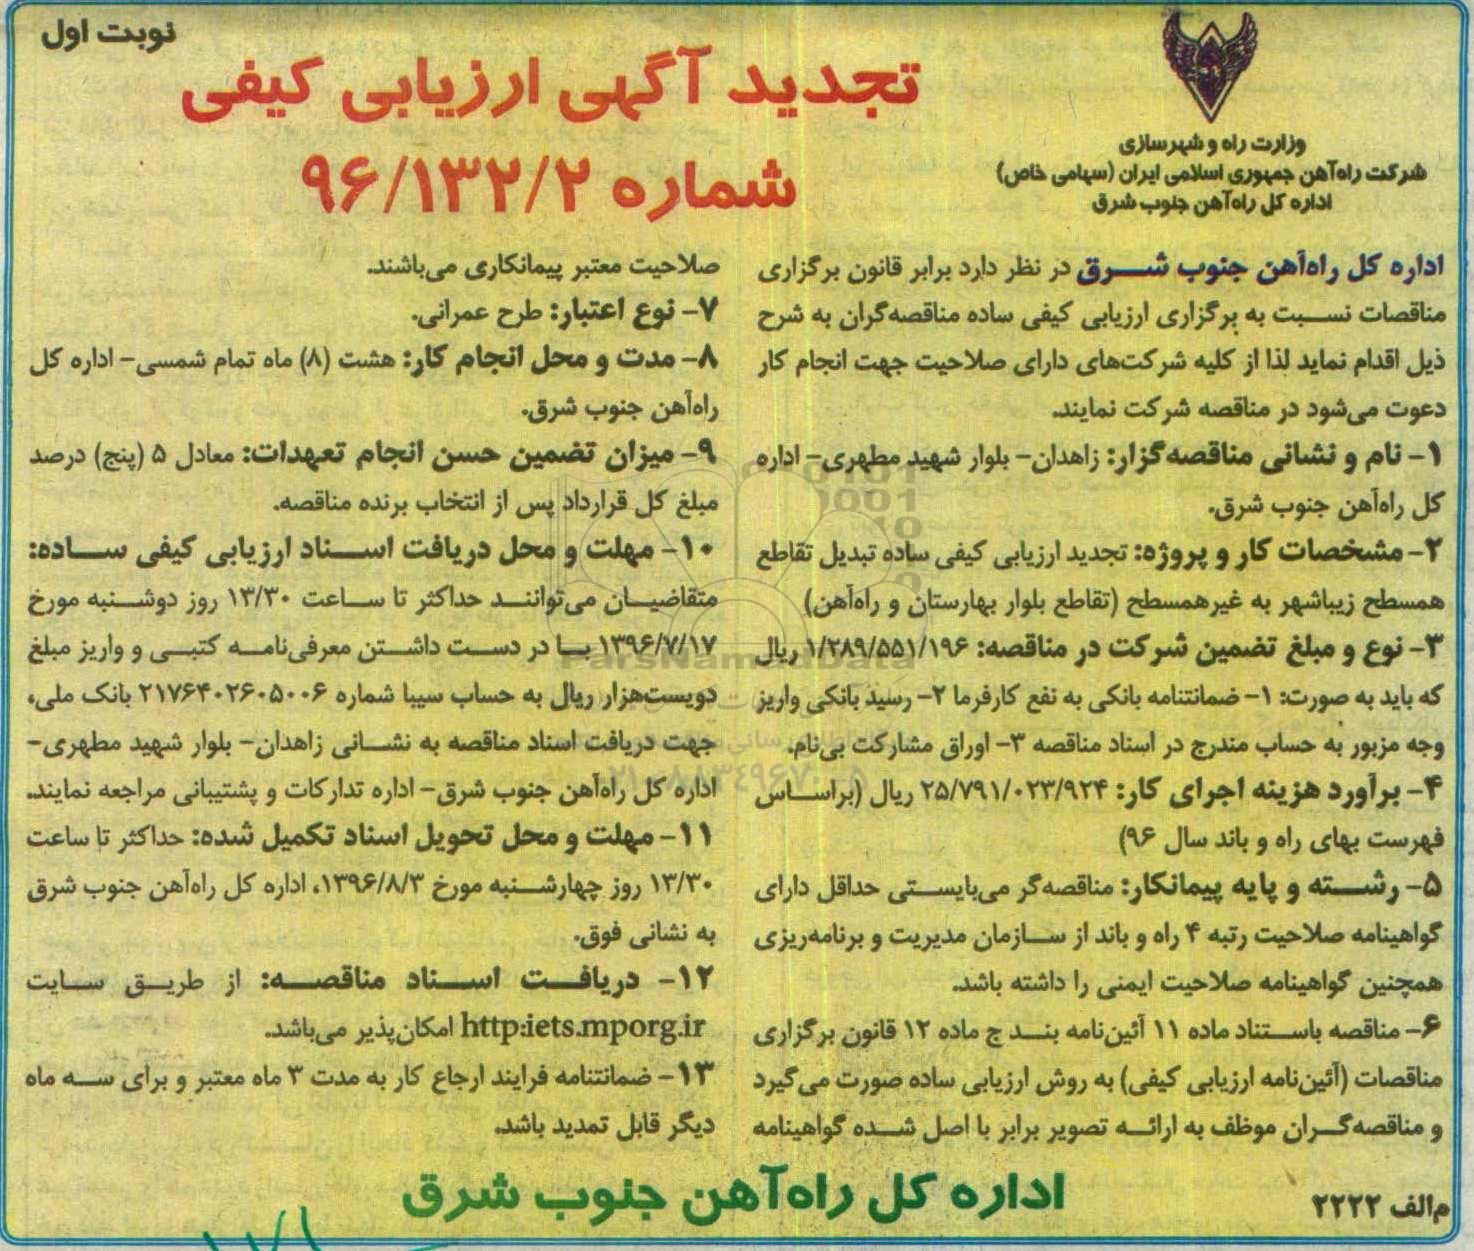 نوبت اول
وزارت راه و شهرسازی
شرکت راه‌آهن جمهوری اسلامی ایران (سهامی خاص)
اداره کل راه‌آهن جنوب شرق
تجدید آگهی ارزیابی کیفی
شماره ۹۶/۱۳۲/۲
اداره کل راه‌آهن جنوب شرق در نظر دارد برابر قانون برگزاری
مناقصات نسبت به برگزاری ارزیابی کیفی ساده مناقصه‌گران به شرح
ذیل اقدام نماید لذا از کلیه شرکت‌های دارای صلاحیت جهت انجام کار
دعوت می‌شود در مناقصه شرکت نمایند.
۱- نام و نشانی مناقصه‌گزار: زاهدان- بلوار شهید مطهری- اداره
کل راه‌آهن جنوب شرق.
۲- مشخصات کار و پروژه: تجدید ارزیابی کیفی ساده تبدیل تقاطع
همسطح زیباشهر به غیرهمسطح (تقاطع بلوار بهارستان و راه‌آهن)
۳- نوع و مبلغ تضمین شرکت در مناقصه: ۱/۲۸۹/۵۵۱/۱۹۶ ریال
که باید به صورت: ۱- ضمانتنامه بانکی به نفع کارفرما ۲- رسید بانکی واریز
وجه مزبور به حساب مندرج در اسناد مناقصه ۳- اوراق مشارکت بی‌نام.
۴- برآورد هزینه اجرای کار: ۲۵/۷۹۱/۰۲۳/۹۲۴ ریال (براساس
فهرست بهای راه و باند سال ۹۶)
۵- رشته و پایه پیمانکار: مناقصه‌گر می‌بایستی حداقل دارای
گواهینامه صلاحیت رتبه ۴ راه و باند از سازمان مدیریت و برنامه‌ریزی
همچنین گواهینامه صلاحیت ایمنی را داشته باشد.
۶- مناقصه باستناد ماده ۱۱ آئین‌نامه بند ج ماده ۱۲ قانون برگزاری
مناقصات (آئین‌نامه ارزیابی کیفی) به روش ارزیابی ساده صورت می‌گیرد
و مناقصه‌گران موظف به ارائه تصویر برابر با اصل شده گواهینامه
صلاحیت معتبر پیمانکاری می‌باشند.
۷- نوع اعتبار: طرح عمرانی.
۸- مدت و محل انجام کار: هشت (۸) ماه تمام شمسی- اداره کل
راه‌آهن جنوب شرق.
۹- میزان تضمین حسن انجام تعهدات: معادل ۵ (پنج) درصد
مبلغ کل قرارداد پس از انتخاب برنده مناقصه.
۱۰- مهلت و محل دریافت اسناد ارزیابی کیفی ساده:
متقاضیان می‌توانند حداکثر تا ساعت ۱۳/۳۰ روز دوشنبه مورخ
۱۳۹۶/۷/۱۷ با در دست داشتن معرفی‌نامه کتبی و واریز مبلغ
دویست‌هزار ریال به حساب سیبا شماره ۲۱۷۶۴۰۲۶۰۵۰۰۶ بانک ملی،
جهت دریافت اسناد مناقصه به نشانی زاهدان- بلوار شهید مطهری-
اداره کل راه‌آهن جنوب شرق- اداره تدارکات و پشتیبانی مراجعه نمایند.
۱۱- مهلت و محل تحویل اسناد تکمیل شده: حداکثر تا ساعت
۱۳/۳۰ روز چهارشنبه مورخ ۱۳۹۶/۸/۳، اداره کل راه‌آهن جنوب شرق
به نشانی فوق.
۱۲- دریافت اسناد مناقصه: از طریق سایت
http:iets.mporg.ir امکان‌پذیر می‌باشد.
۱۳- ضمانتنامه فرایند ارجاع کار به مدت ۳ ماه معتبر و برای سه ماه
دیگر قابل تمدید باشد.
اداره کل راه‌آهن جنوب شرق
م‌الف ۲۲۲۲
ParsNamadData